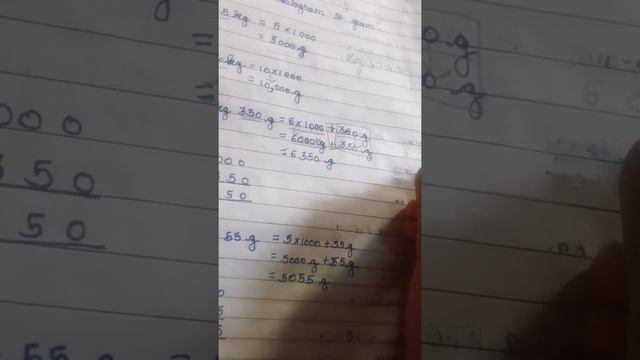 kilogram to gram
5 kg = 5 x 1000
= 5000 g
kg = 10 x 1000
= 10,000 g
kg 350 g = 6 x 1000 + 350 g
= 6000 g + 350 g
= 6350 g
000
350
50
55 g = 5 x 1000 + 55 g
= 5000 g + 55 g
= 5055 g